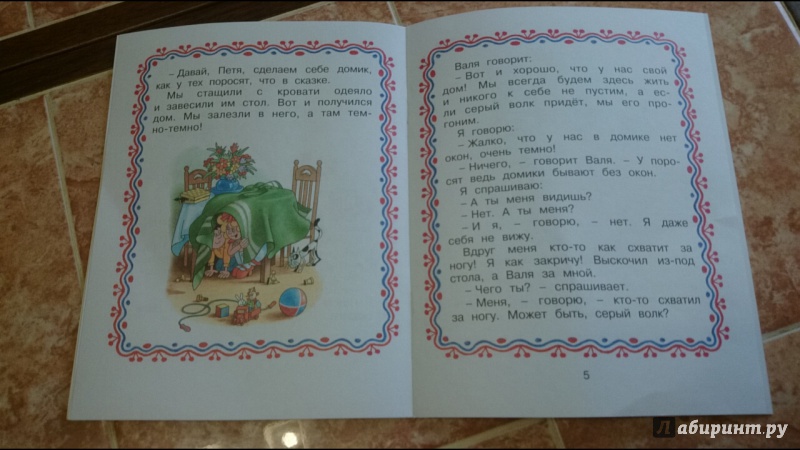 – Давай, Петя, сделаем себе домик,
как у тех поросят, что в сказке.
Мы стащили с кровати одеяло
и завесили им стол. Вот и получился
дом. Мы залезли в него, а там тем-
но-темно!
Валя говорит:
– Вот и хорошо, что у нас свой
дом! Мы всегда будем здесь жить
и никого к себе не пустим, а ес-
ли серый волк придёт, мы его про-
гоним.
Я говорю:
– Жалко, что у нас в домике нет
окон, очень темно!
– Ничего, – говорит Валя. – У поро-
сят ведь домики бывают без окон.
Я спрашиваю:
– А ты меня видишь?
– Нет. А ты меня?
– И я, – говорю, – нет. Я даже
себя не вижу.
Вдруг меня кто-то как схватит за
ногу! Я как закричу! Выскочил из-под
стола, а Валя за мной.
– Чего ты? – спрашивает.
– Меня, – говорю, – кто-то схватил
за ногу. Может быть, серый волк?
5
Лабиринт.ру